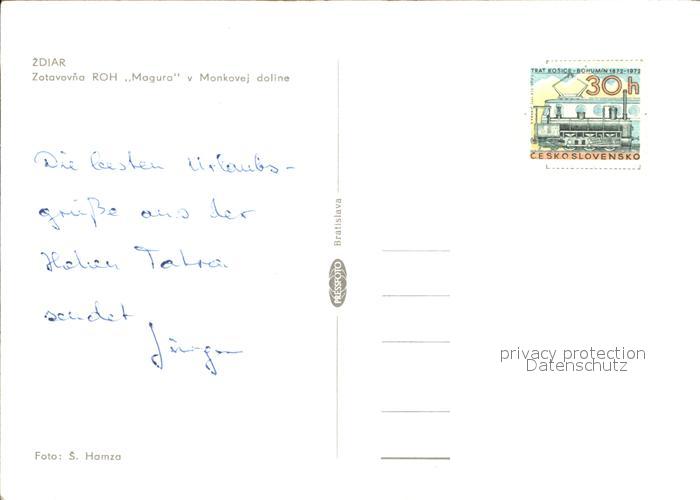 ŽDIAR
Zotavovňa ROH „Magura" v Monkovej doline
TRAŤ KOŠICE-BOHUMÍN 1872-1972
30h
ČESKOSLOVENSKO
Die besten Urlaubs-
grüße aus der
Hohen Tatra
sendet
Jürgen
Bratislava
PRESSFOTO
privacy protection
Datenschutz
Foto: Š. Hamza